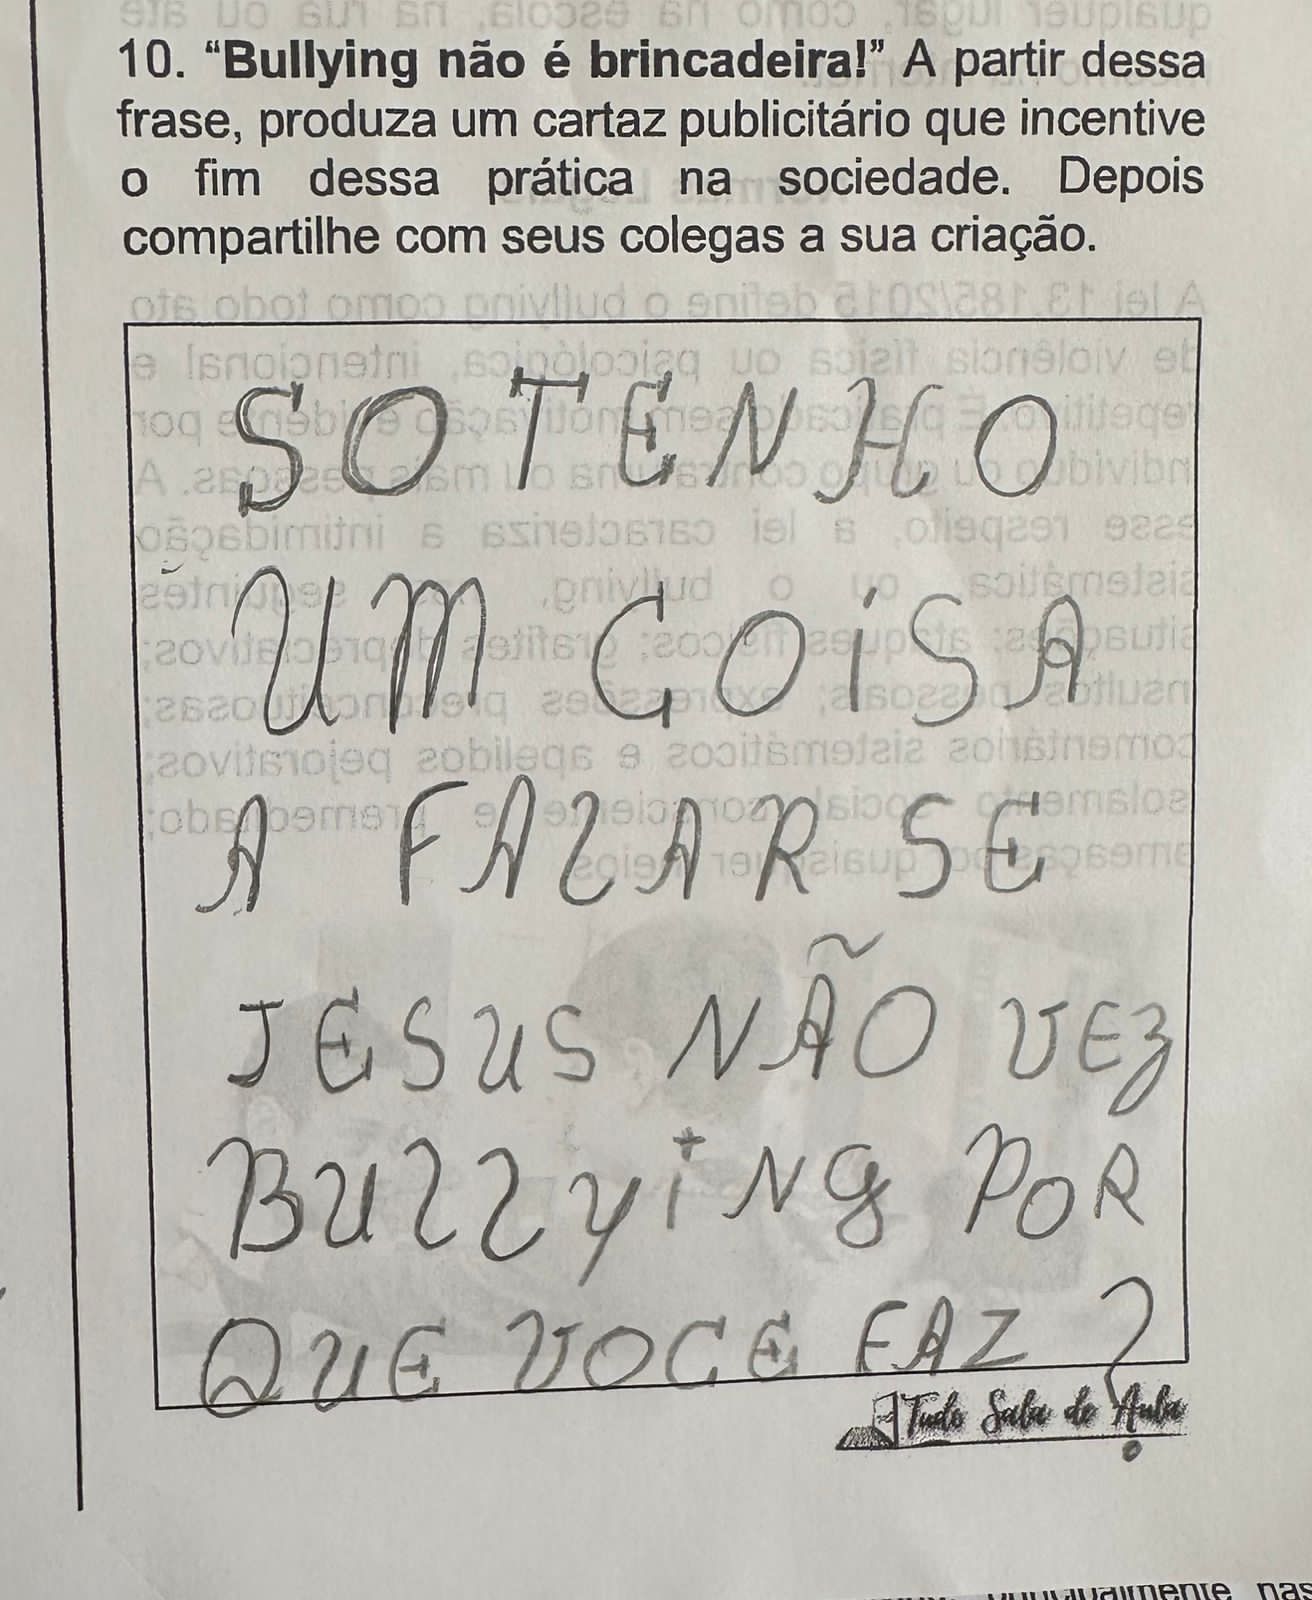 10. “Bullying não é brincadeira!” A partir dessa
frase, produza um cartaz publicitário que incentive
o fim dessa prática na sociedade. Depois
compartilhe com seus colegas a sua criação.
SO TENHO
UM COISA
A FALAR SE
JESUS NÃO VEZ
BULLYING POR
QUE VOCE FAZ ?
Tudo Sala de Aula
principalmente nas